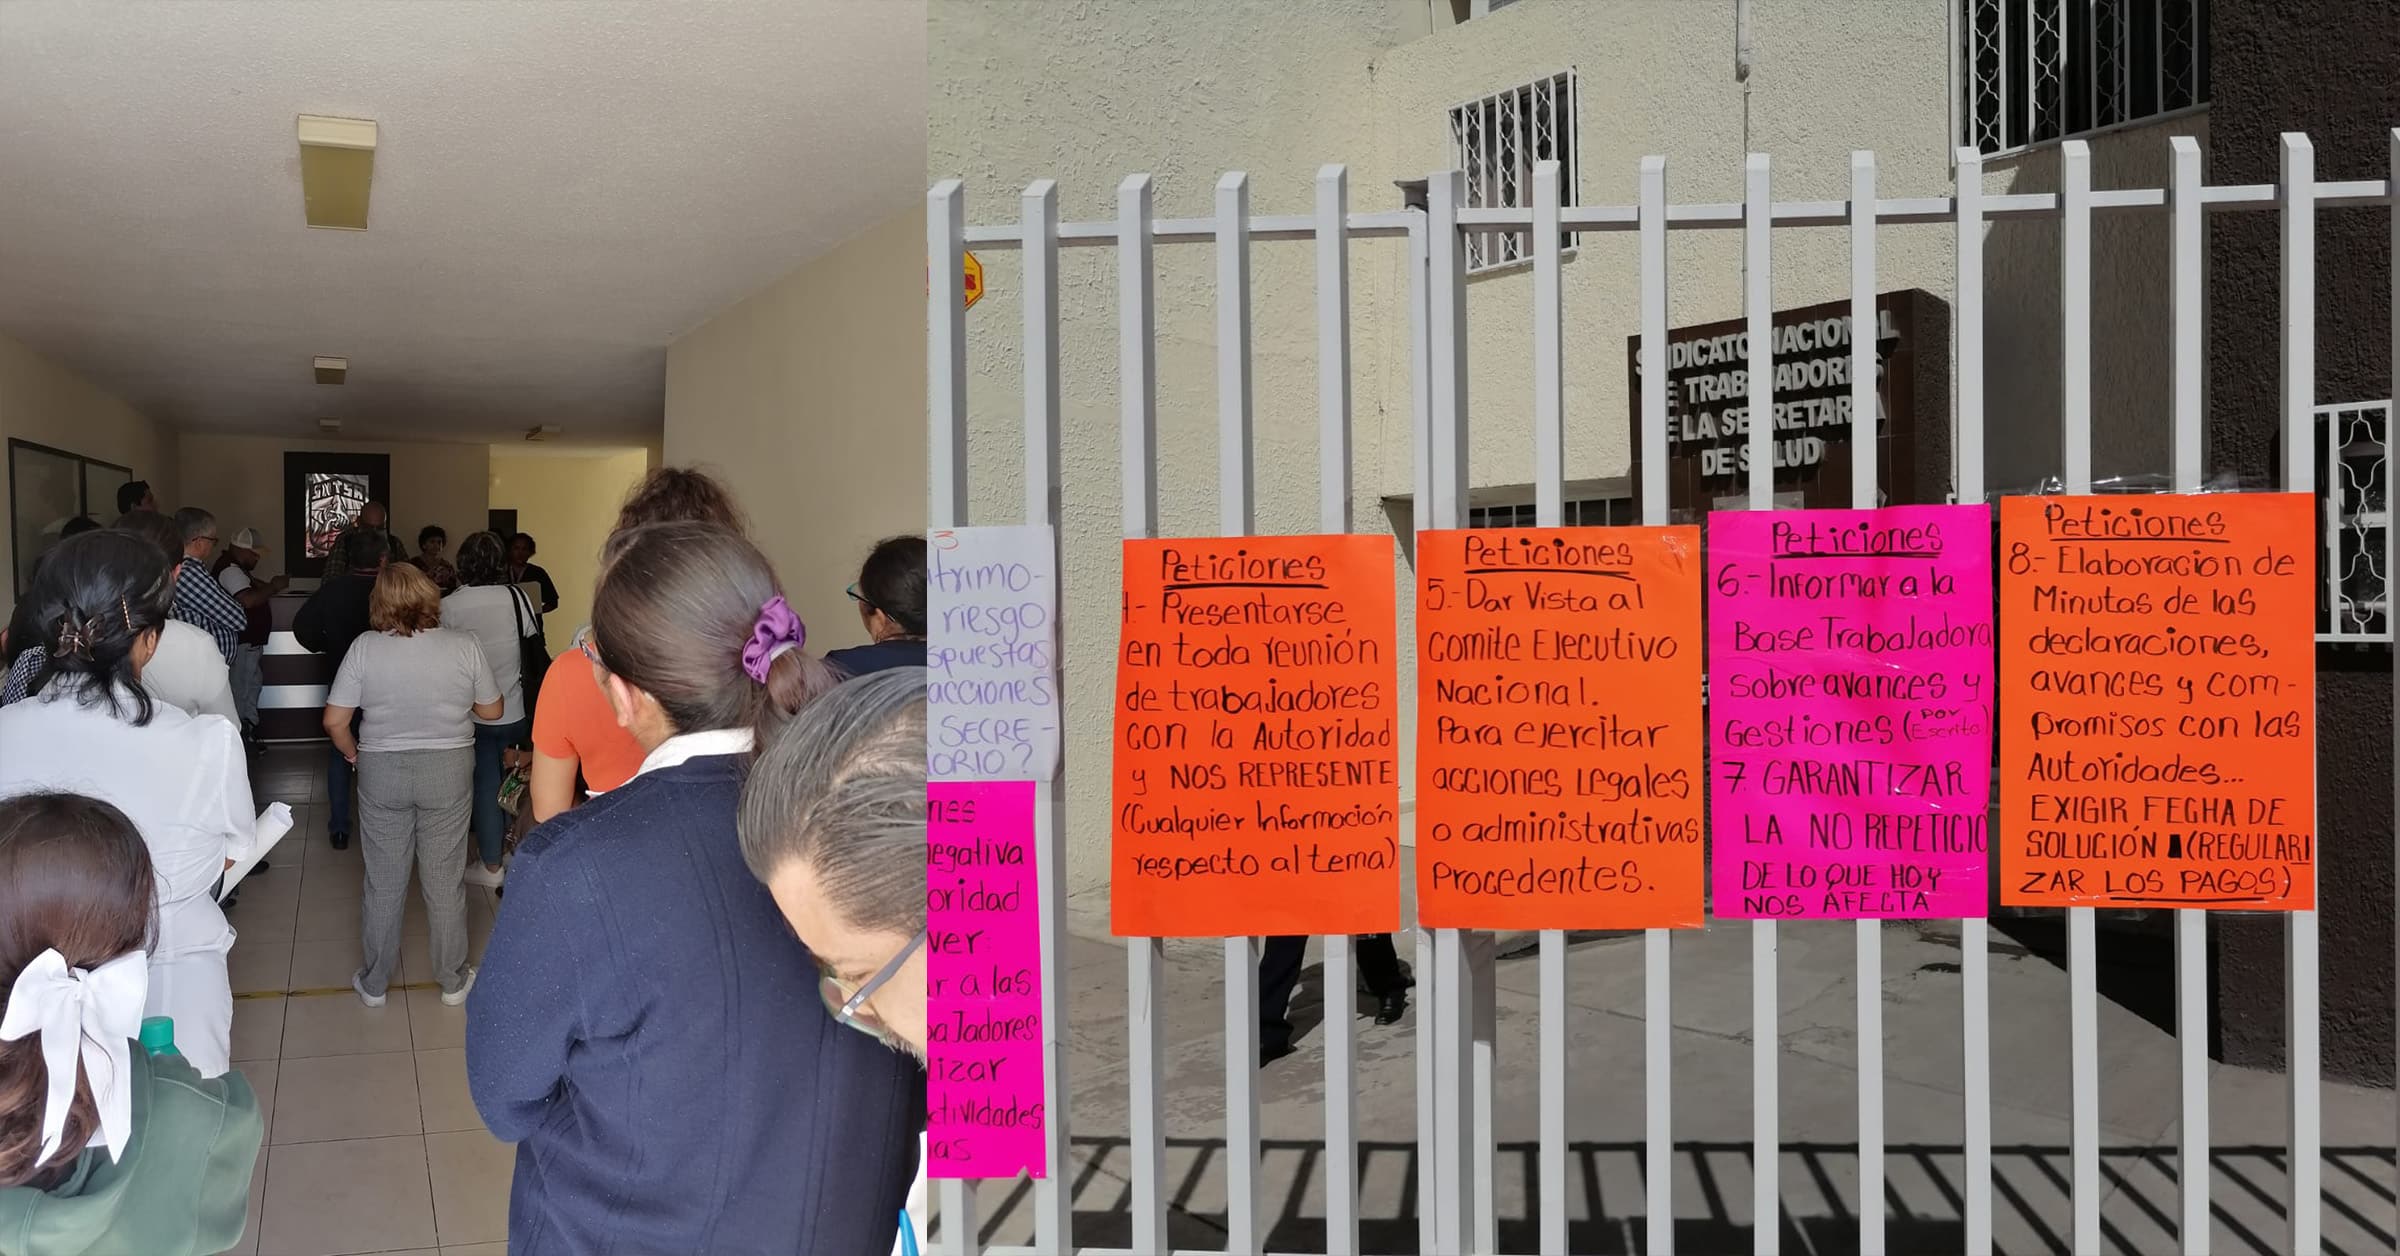 SNTSA
SINDICATO NACIONAL
DE TRABAJADORES
DE LA SECRETARIA
DE SALUD
3
trimo-
riesgo
spuestas
acciones
SECRE-
ORIO?
nes
egativa
oridad
ver:
r a las
baJadores
lizar
ctividades
as
Peticiones
4.- Presentarse
en toda reunión
de trabajadores
con la Autoridad
y NOS REPRESENTE
(Cualquier Información
respecto al tema)
Peticiones
5.- Dar Vista al
Comite Ejecutivo
Nacional.
Para ejercitar
acciones Legales
o administrativas
Procedentes.
Peticiones
6.- Informar a la
Base TrabaJadora
sobre avances y
Gestiones (por Escrito)
7. GARANTIZAR
LA NO REPETICIO
DE LO QUE HOY
NOS AFECTA
Peticiones
8.- Elaboracion de
Minutas de las
declaraciones,
avances y com-
promisos con las
Autoridades...
EXIGIR FECHA DE
SOLUCIÓN (REGULARI
ZAR LOS PAGOS)